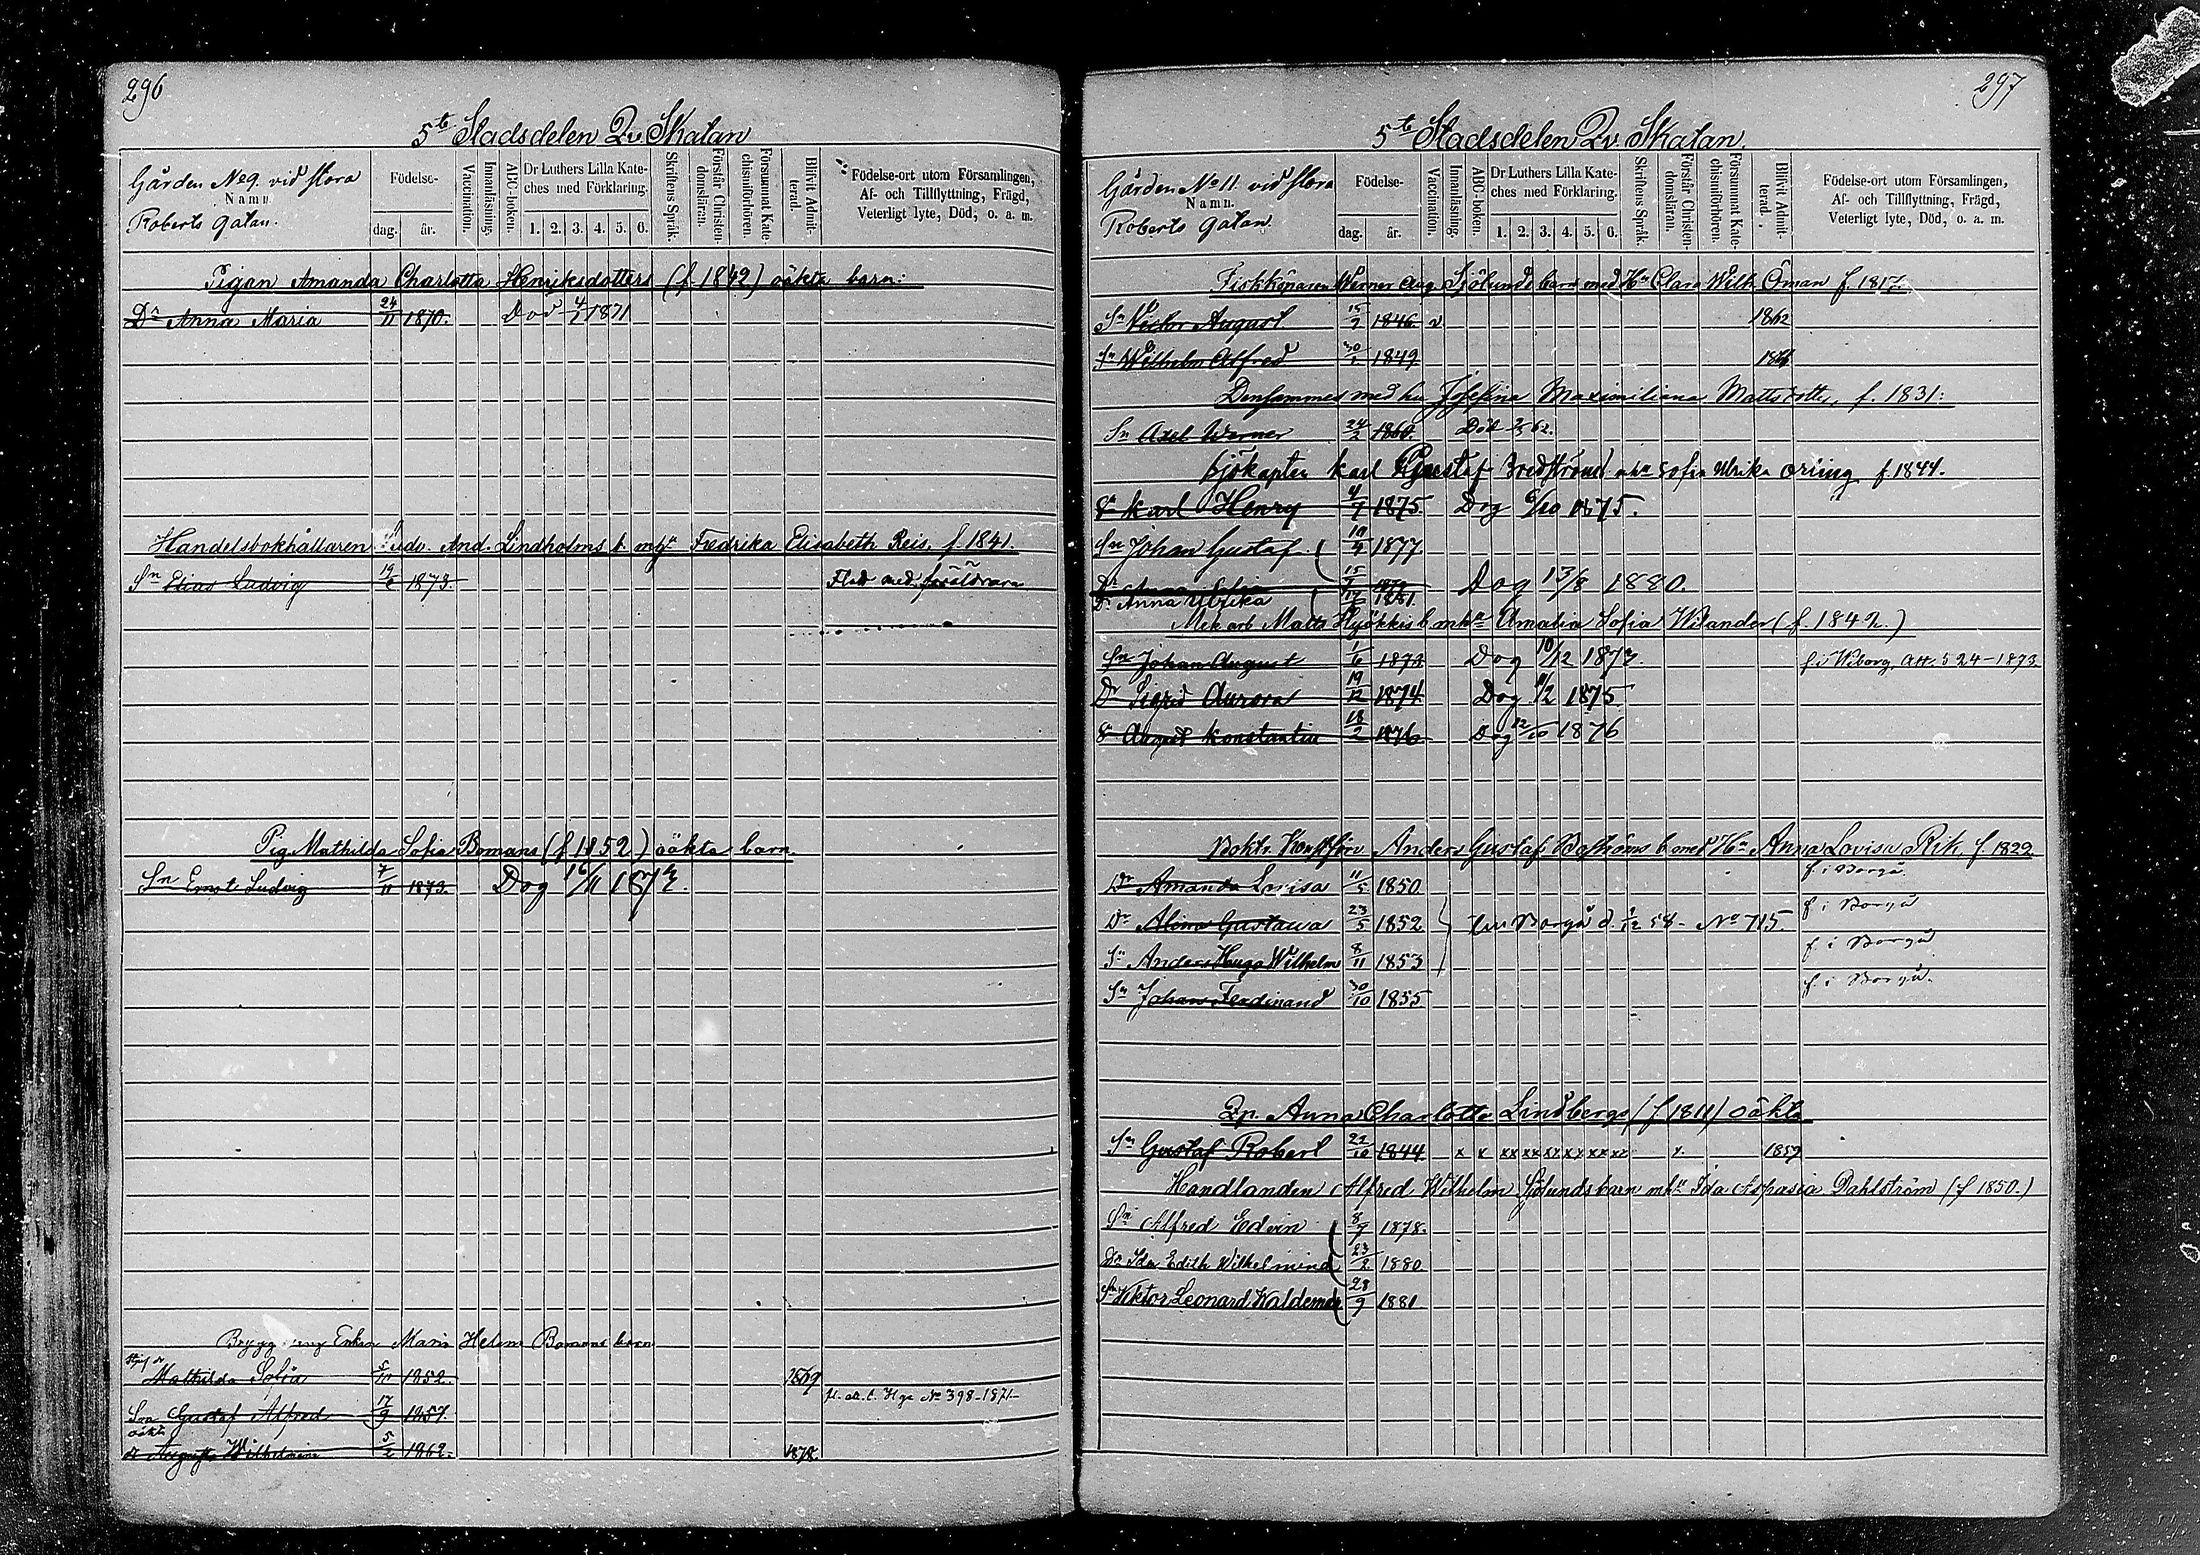 296
5te Stadsdelen Qv. Skatan
Gården No 9. vid stora
Namn.
Roberts gatan.
Födelse-
dag. år.
Vaccination.
Innanläsning.
ABC-boken.
Dr Luthers Lilla Kate-
ches med Förklaring.
1. 2. 3. 4. 5. 6.
Skriftens Språk.
Förstår Christen-
domsläran.
Försummat Kate-
chismiförhören.
Blifvit Admit-
terad.
Födelse-ort utom Församlingen,
Af- och Tillflyttning, Frägd,
Veterligt lyte, Död, o. a. m.
Pigan Amanda Charlotta Henriksdotters (f. 1842) oäkta barn:
Dr Anna Maria 24/11 1870. Död 4/2 1871
Handelsbokhållaren Ludv. And. Lindholms b. mhu Fredrika Elisabeth Reis, f. 1841.
Sn Elias Ludvig 19/6 1873. Flad med föräldrarna
Pig. Mathilda Sofia Bomans (f 1852) oäkta barn.
Sn Ernst Ludvig 7/11 1872. Dog 16/11 1872.
Enkan Maria Helena Bomans barn
Mathilda Sofia 5/10 1852. 1869
fl. att. t. H:gs No 398-1871-
Sn Gustaf Alfred 17/9 1857.
oäkta
dr Augusta Wilhelmina 5/2 1862. 1878.
297
5te Stadsdelen Qv. Skatan.
Gården No 11. vid stora
Namn.
Roberts gatan.
Födelse-
dag. år.
Vaccination.
Innanläsning.
ABC-boken.
Dr Luthers Lilla Kate-
ches med Förklaring.
1. 2. 3. 4. 5. 6.
Skriftens Språk.
Förstår Christen-
domsläran.
Försummat Kate-
chismiförhören.
Blifvit Admit-
terad.
Födelse-ort utom Församlingen,
Af- och Tillflyttning, Frägd,
Veterligt lyte, Död, o. a. m.
Fiskköparen Werner Aug. Sjölunds barn med Hu Clara Wilh. Öman f. 1817.
Sn Victor August 15/7 1846. v 1862
Sn Wilhelm Alfred 30/1 1849
Densammes med hu Josefina Maximiliana Mattsdotter, f. 1831:
Sn Axel Werner 24/2 1860. Död 62.
Sjökapten Karl Gustaf mhu Sofia Ulrika f. 1844.
Sn Karl Henry 4/7 1875 Dog 6/10 1875.
Sn Johan Gustaf 10/9 1877
Dr Anna Dog 13/8 1880.
Dr Anna Ulrika 1881.
Matts b mhu Amalia Sofia Wilander (f. 1842.)
Sn Johan August 1/6 1873 Dog 10/12 1873. f. i Wiborg, att. 524-1873
Dr Sigrid Aurora 19/12 1874 Dog 11/2 1875
Sn August Konstantin 18/2 1876 Dog 12/10 1876
Anders Gustaf b. med Hu Anna Lovisa Rik, f 1822
Dr Amanda Lovisa 11/5 1850 f. i Borgå.
Dr Alina Gustava 23/5 1852 f. i Borgå
Borgå d. 58- No 715.
Sn Anders Hugo Wilhelm 8/11 1853 f. i Borgå
Sn Johan Ferdinand 30/10 1855 f. i Borgå.
Qp. Anna Charlotta Lindbergs (f. 1811) oäkta
Sn Gustaf Robert 22/10 1844 x x xx xx xx xx xx xx x 1859
Handlanden Alfred Wilhelm Sjölunds barn mhu Ida Aspasia Dahlström (f 1850.)
Sn Alfred Edvin 8/9 1878.
Dr Ida Edith Wilhelmina 23/2 1880.
Sn Viktor Leonard Waldemar 28/9 1881